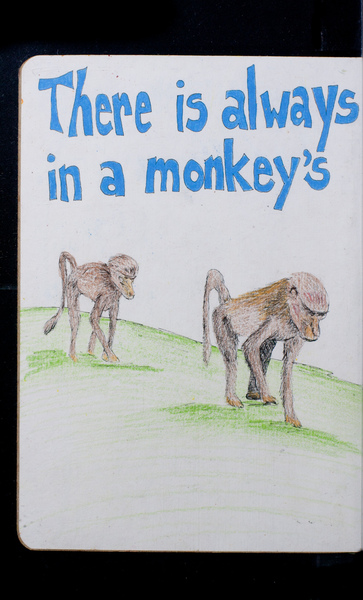 There is always
in a monkey's